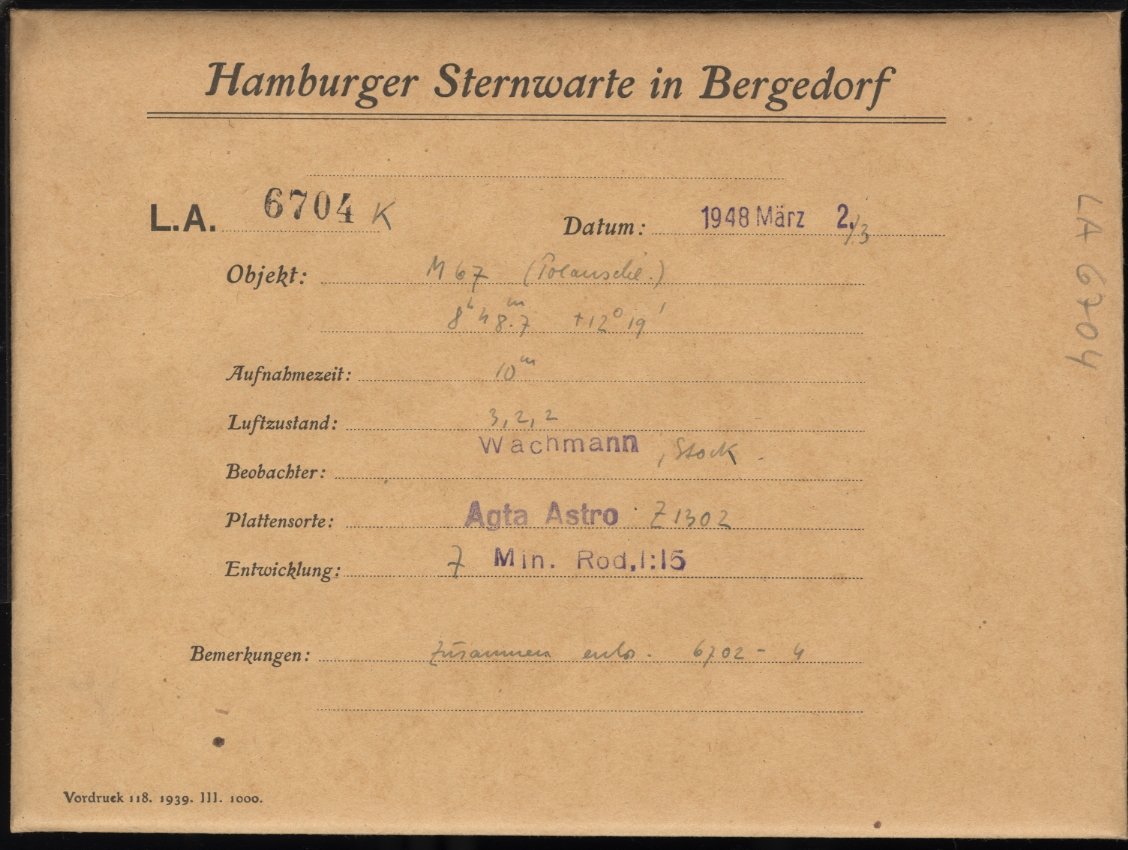 Hamburger Sternwarte in Bergedorf
L.A. 6704 K
Datum: 1948 März 2./3
Objekt: M 67
8ʰ48.ᵐ7 +12° 19'
Aufnahmezeit: 10ᵐ
Luftzustand: 3, 2, 2
Beobachter: Wachmann, Stock.
Plattensorte: Agfa Astro Z1302
Entwicklung: 7 Min. Rod, 1:15
Bemerkungen: Zusammen 6702 - 4
Vordruck 118. 1939. III. 1000.
LA 6704